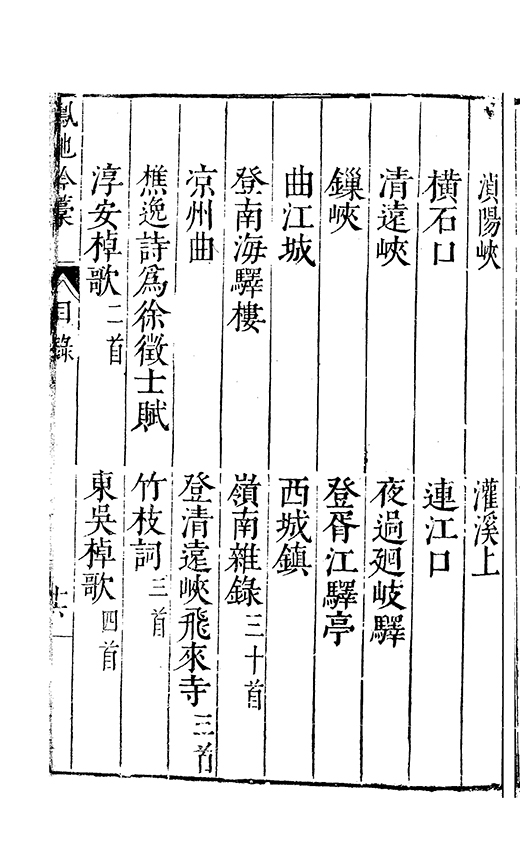 湞陽峽　灌溪上
橫石口　連江口
清遠峽　夜過廻岐驛
鏁峽　登胥江驛亭
曲江城　西城鎮
登南海驛樓　嶺南雜錄三十首
凉州曲　登清遠峽飛來寺三首
樵逸詩為徐徵士賦　竹枝詞三首
淳安棹歌二首　東吳棹歌四首
鳳池吟稾　目錄　十六